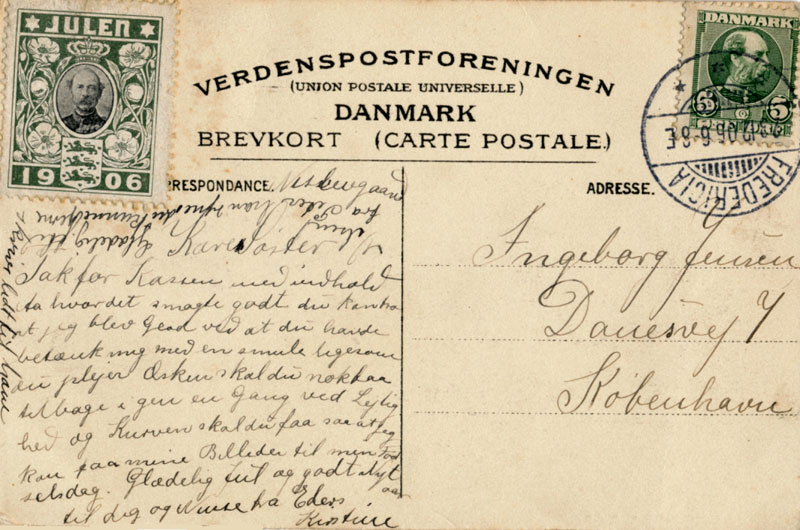 JULEN
1906
VERDENSPOSTFORENINGEN
(UNION POSTALE UNIVERSELLE)
DANMARK
BREVKORT (CARTE POSTALE.)
DANMARK
5 5
FREDERICIA
RRESPONDANCE.
ADRESSE.
Kære Søster
Tak for Kassen med indhold
ta hvor det smagte godt du kan tro
at jeg blev Glad ved at du havde
betænk mig med en smule ligesom
du plejer Æsken skal du nok faa
tilbage i gen en Gang ved Lejlig
hed og Kurven skal du faa saa at jeg
kan faa mine Billeder til min Fød
selsdag. Glædelig Jul og godt Nyt
aar
til dig og fra Eders
Kirstine
Ingeborg Jensen
Danesvej 7
København